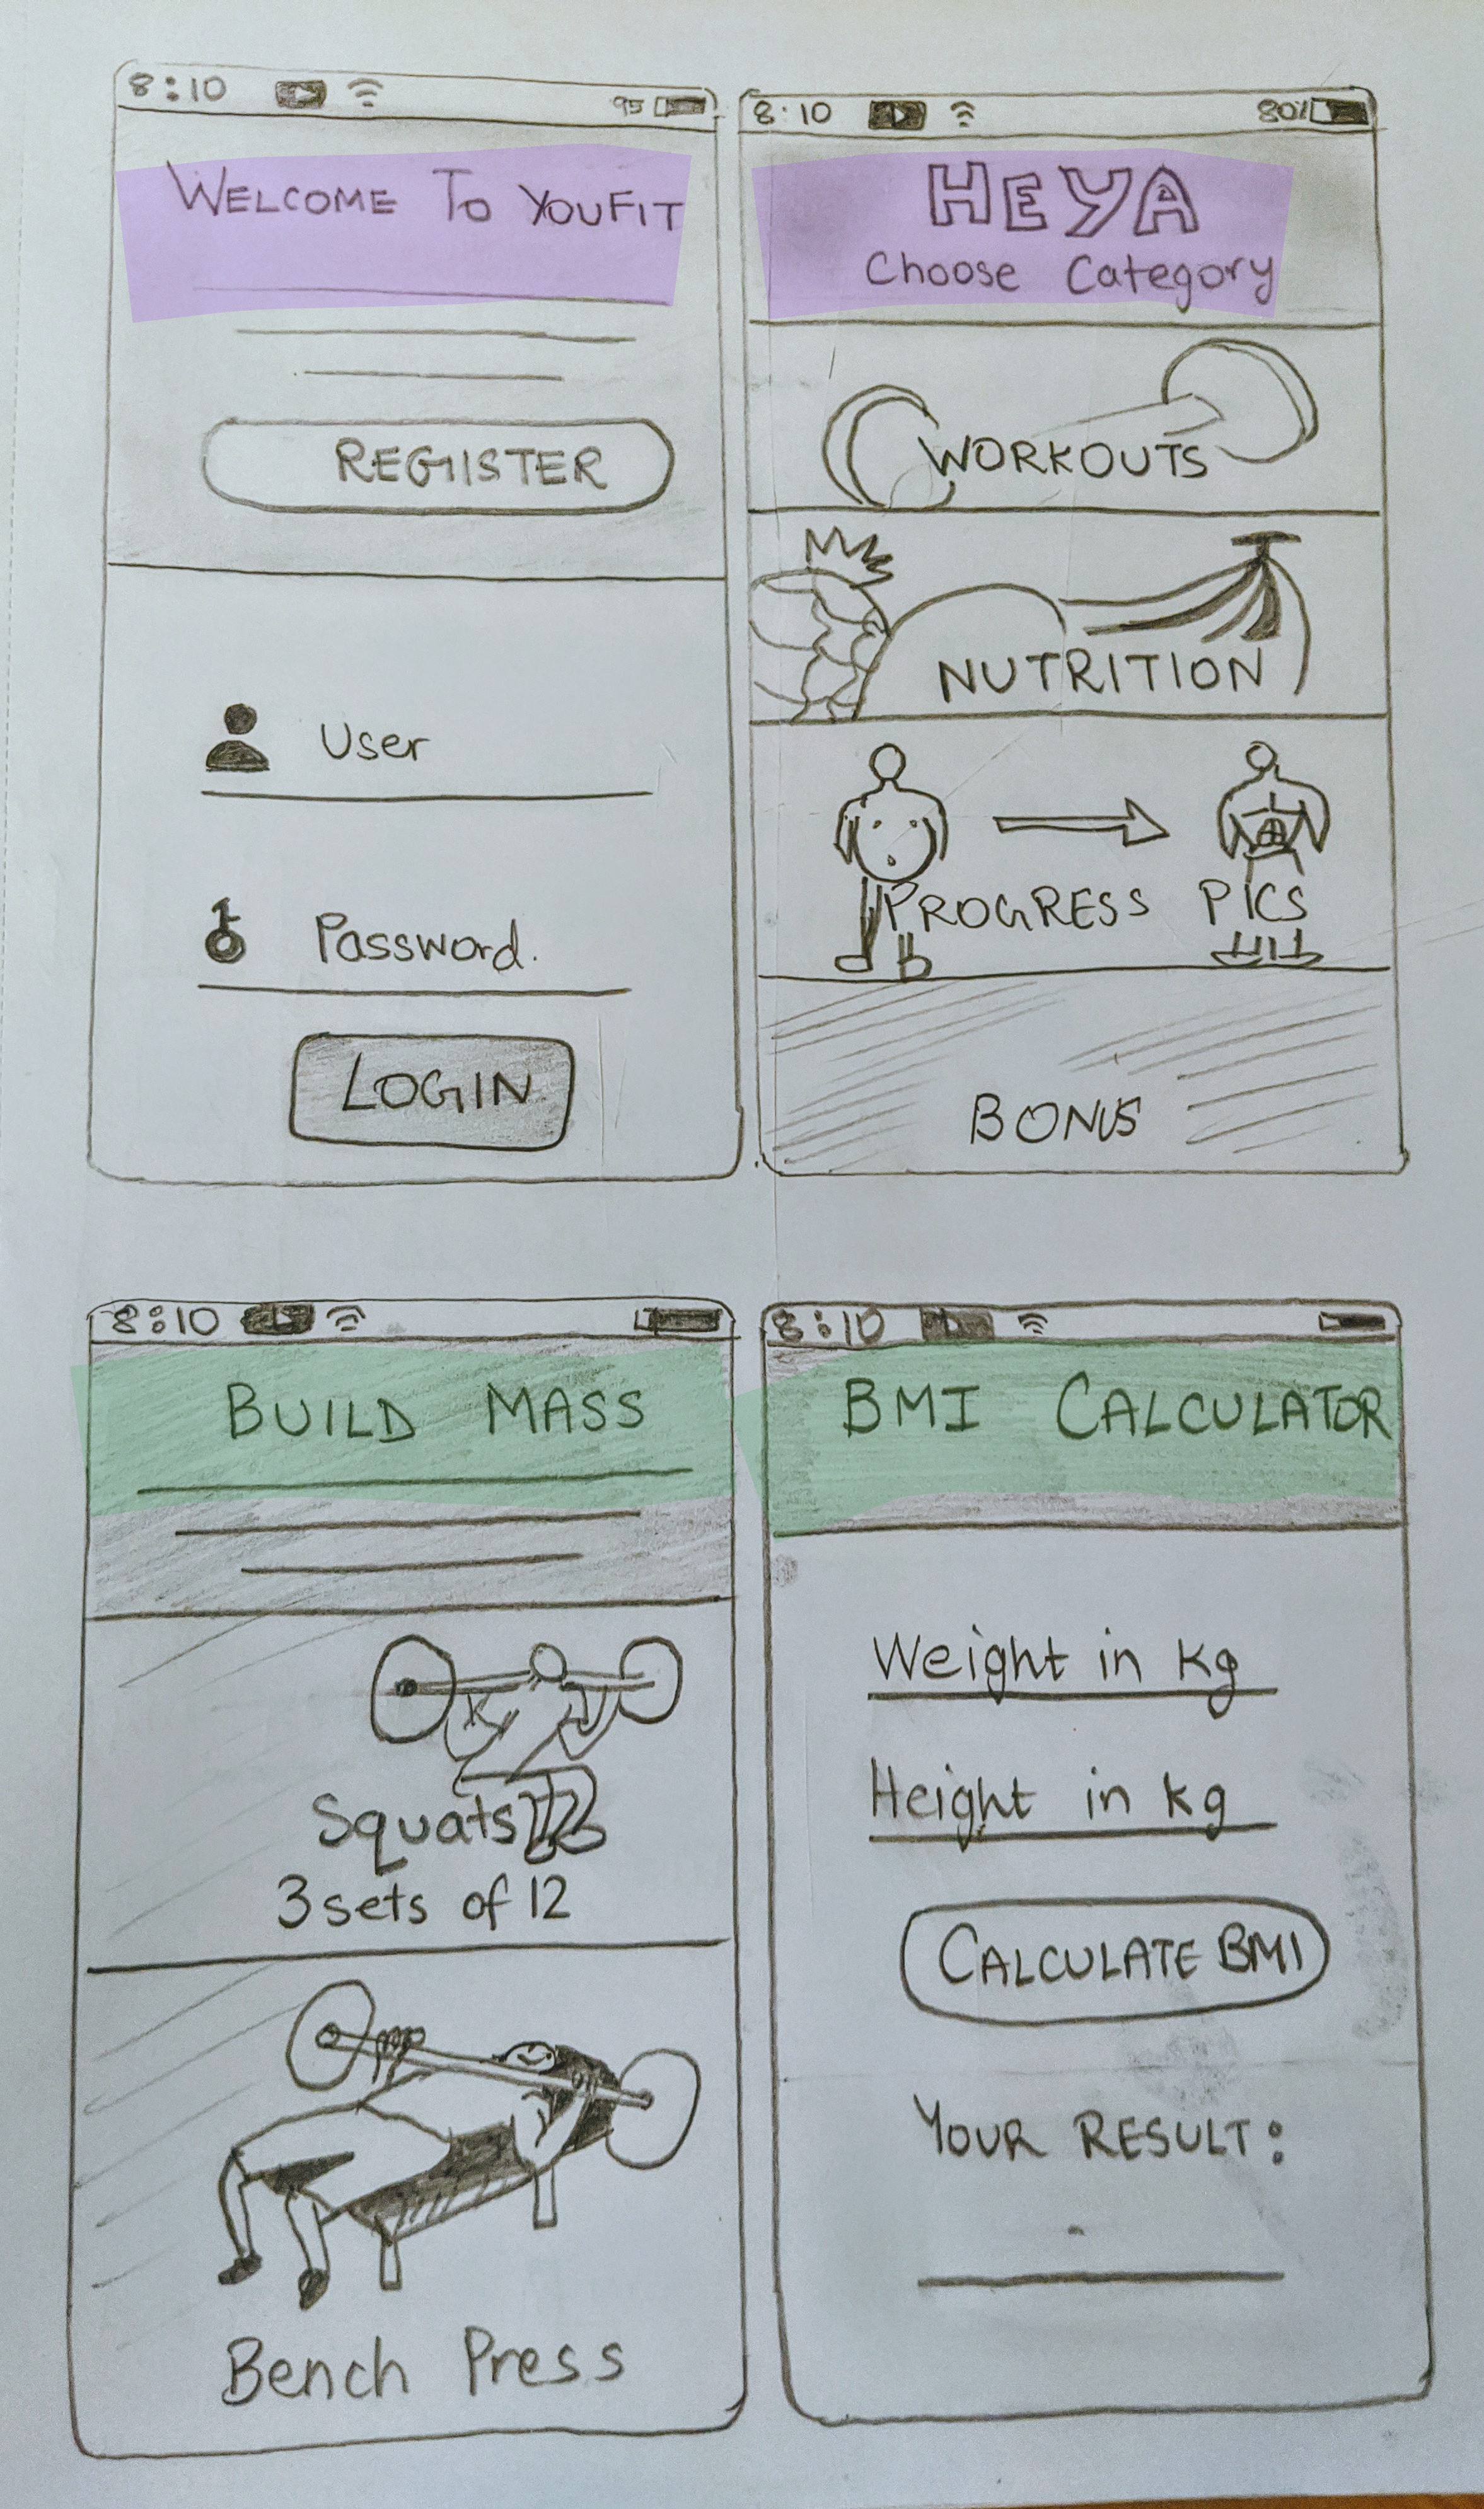 8:10 95
WELCOME TO YOUFIT
REGIISTER
User
Password.
LOGIN
8:10 80%
HEYA
Choose Category
WORKOUTS
NUTRITION
PROGRESS PICS
BONUS
8:10
BUILD MASS
Squats
3 sets of 12
Bench Press
8:10
BMI CALCULATOR
Weight in kg
Height in kg
CALCULATE BMI
YOUR RESULT: